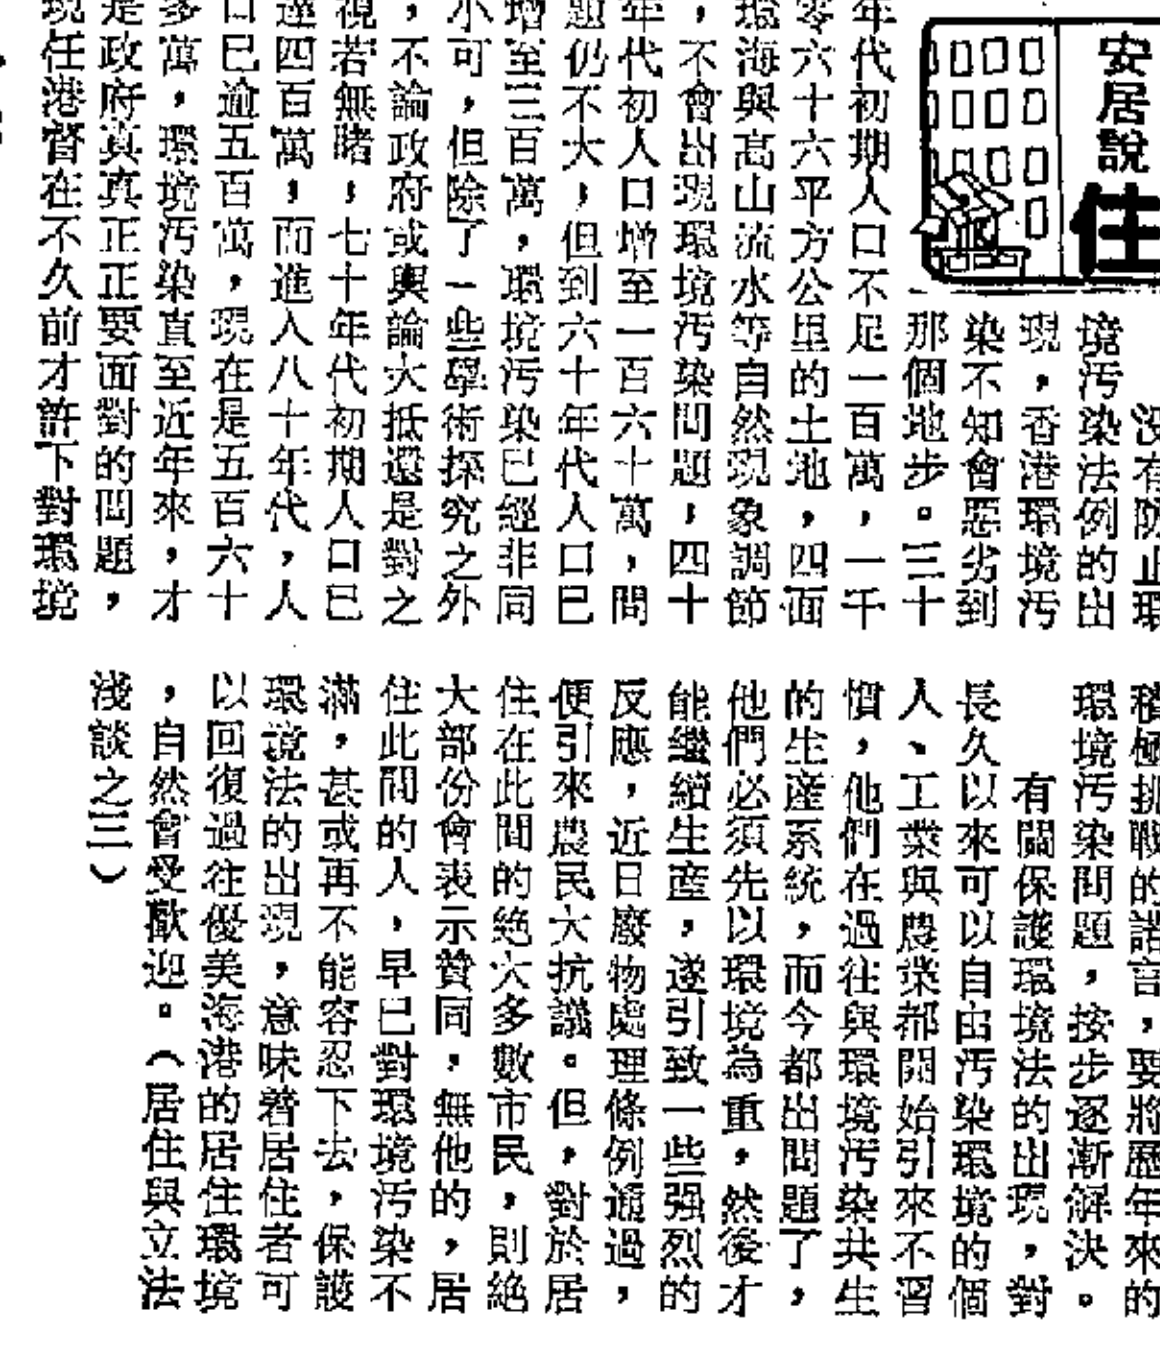 安居說
住
没有防止環
境污染法例的出
現，香港環境污
染不知會惡劣到
那個地步。三十
年代初期人口不足一百萬，一千
零六十六平方公里的土地，四面
環海與高山流水等自然現象調節
，不會出現環境污染問題，四十
年代初人口增至一百六十萬，問
題仍不大，但到六十年代人口已
增至三百萬，環境污染已經非同
小可，但除了一些學術探究之外
，不論政府或輿論大抵還是對之
視若無睹，七十年代初期人口已
達四百萬，而進入八十年代，人
口已逾五百萬，現在是五百六十
多萬，環境污染直至近年來，才
是政府真真正正要面對的問題，
現任港督在不久前才許下對環境
積極挑戰的諾言，要將歷年來的
環境污染問題，按步逐漸解決。
有關保護環境法的出現，對
長久以來可以自由污染環境的個
人、工業與農業都開始引來不習
慣，他們在過往與環境污染共生
的生産系統，而今都出問題了，
他們必須先以環境為重，然後才
能繼續生産，遂引致一些强烈的
反應，近日廢物處理條例通過，
便引來農民大抗議。但，對於居
住在此間的絶大多數市民，則絶
大部份會表示贊同，無他的，居
住此間的人，早已對環境污染不
滿，甚或再不能容忍下去，保護
環境法的出現，意味着居住者可
以回復過往優美海港的居住環境
，自然會受歡迎。（居住與立法
淺談之三）